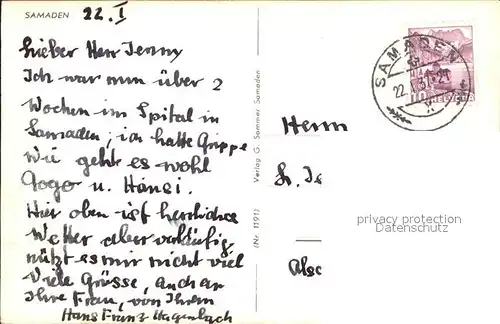 SAMADEN
22. I
Lieber Herr Jenny
Ich war nun über 2
Wochen im Spital in
Samaden; ich hatte Grippe
Wie geht es wohl
Gogo u. Hansi.
Hier oben ist herrliches
Wetter aber vorläufig
nützt es mir nicht viel
Viele Grüsse, auch an
Ihre Frau, von Ihrem
Hans Franz Hagenbach
Verlag G. Sommer Samaden
(Nr. 1191)
SAMADEN
22. I.
HELVETIA
Herrn
privacy protection
Datenschutz